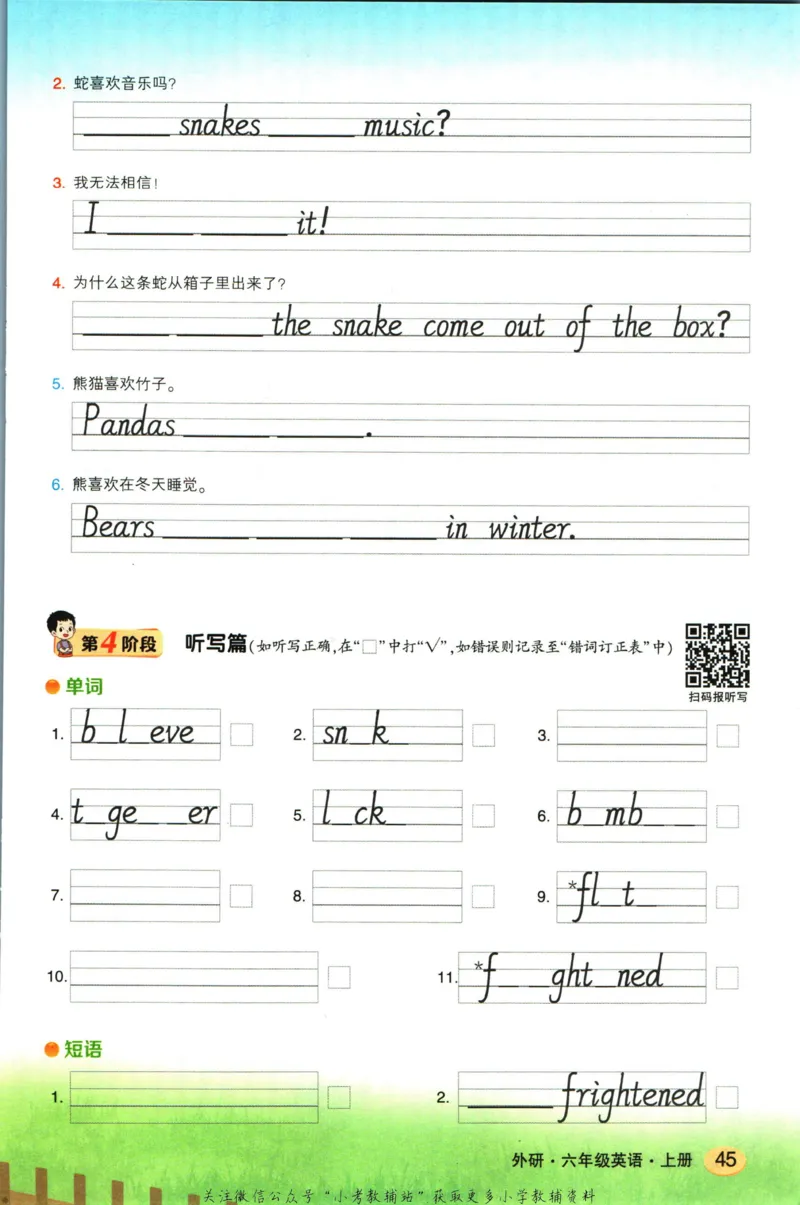 2. 蛇喜欢音乐吗?
______ snakes ______ music?
3. 我无法相信!
I ______ ______ it!
4. 为什么这条蛇从箱子里出来了?
______ ______ the snake come out of the box?
5. 熊猫喜欢竹子。
Pandas ______ ______.
6. 熊喜欢在冬天睡觉。
Bears ______ ______ ______ in winter.
第4阶段 听写篇(如听写正确,在“□”中打“√”,如错误则记录至“错词订正表”中)
扫码报听写
单词
1. b_l_eve □ 2. sn_k_ □ 3. □
4. t_ge__er □ 5. l_ck_ □ 6. b_mb__ □
7. □ 8. □ 9. *fl_t_ □
10. □ 11. *f__ght_ned □
短语
1. □ 2. ______ frightened □
外研·六年级英语·上册 45
关注微信公众号“小考教辅站”获取更多小学教辅资料